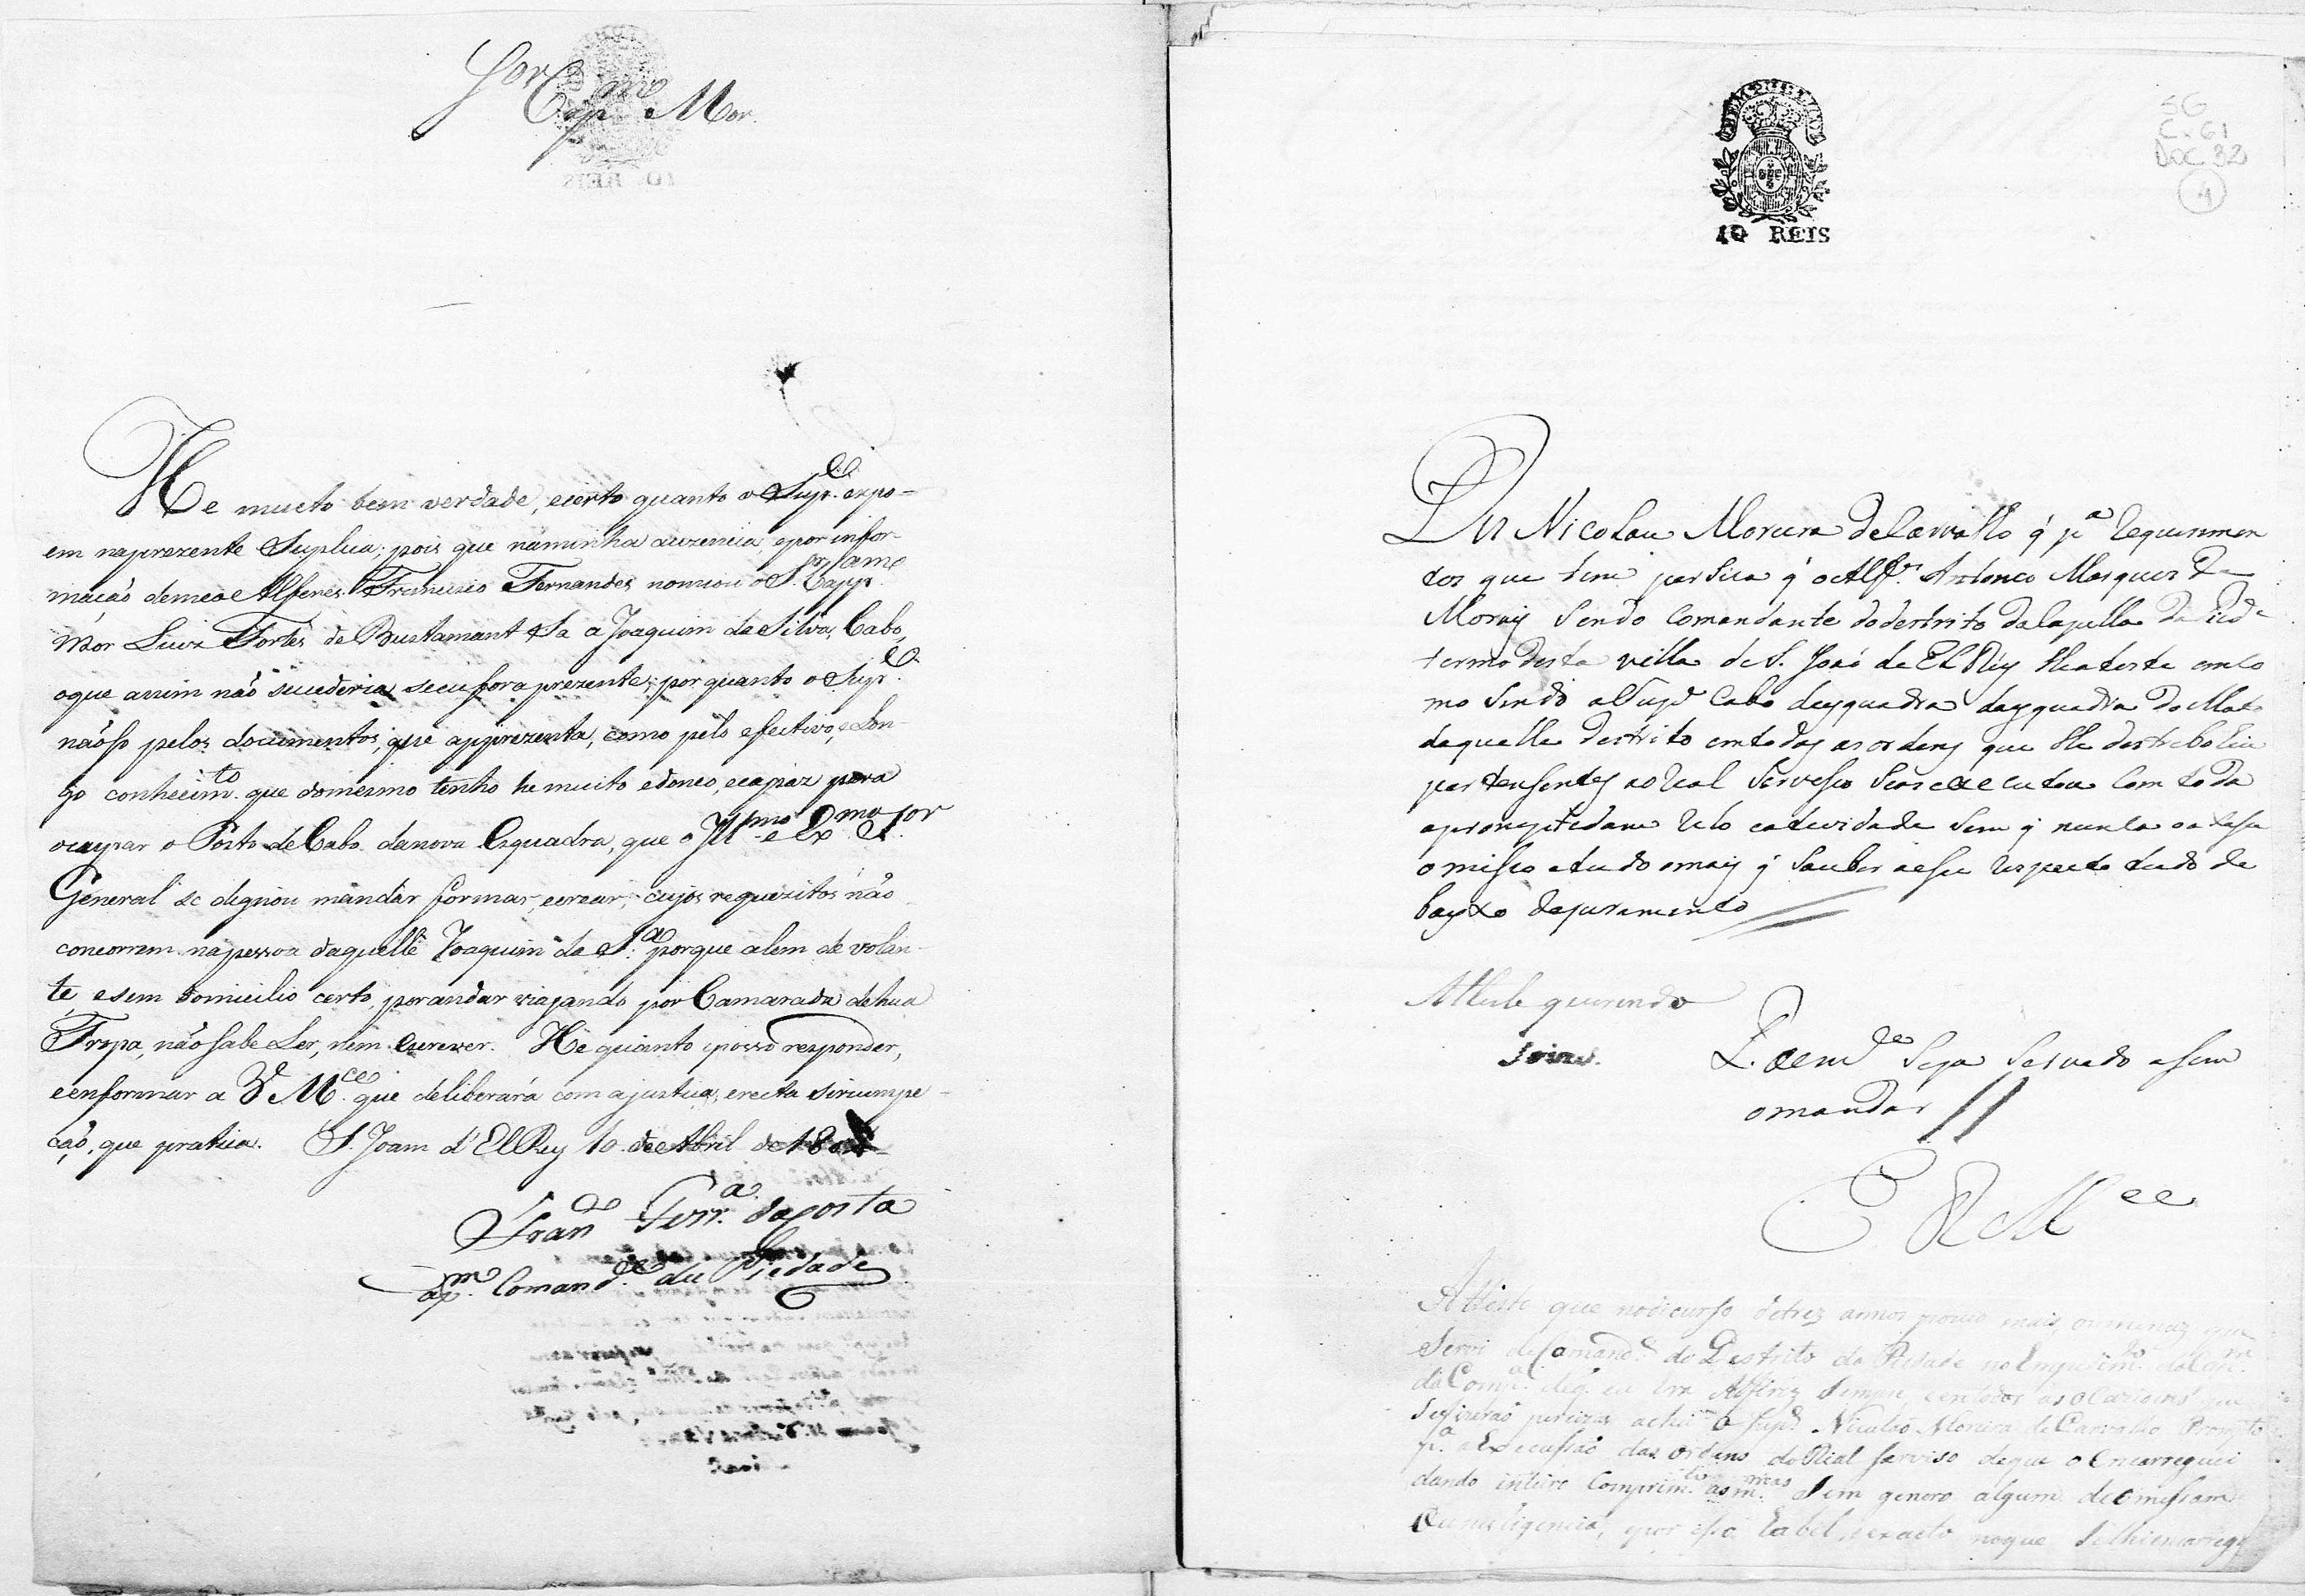 Sor Capm Mor.
He muito bem verdade, e certo quanto o Supe. expo=
em naprezente Suplica; pois que naminha auzencia, epor infor-
mação demeo Alferes Francisco Fernandes nomiou o Sor Capam
Mor Luiz Fortes de Bustamant e Sa a Joaquim da Silva, Cabo,
oque assim não sucederia seeu fora prezente; porquanto o Supe.
nãoso pelos documentos, que apprezenta, como pelo efectivo, e Lon-
go conhecimto. que domesmo tenho he muito edoneo, ecapaz para
ocupar o Posto de Cabo danova Esquadra, que o Illmo e Exmo Sor
General se dignou mandar formar, e crear, cujos requezitos não
concorrem napessoa daquelle Joaquim da Sa. porque alem de volan-
te, esem domicilio certo, porandar viajando por Camarada dehua
Tropa, não sabe Ler, nem escrever. He quanto posso responder,
eenformar a V Mce. que deliberará com ajustiça, erecta sircumpe-
cção, que pratica. S. Joam d'ElRey 10 de Abril de 180
Franco Ferra. dacosta
Capm. Comande. da Piedade
10 REIS
SG
C. 61
DOC 32
1
Diz Nicolau Morera deCarvalho q pa requerimen
tos que tem percisa q oAlfs. Antonco Marques de
Morais sendo Comandante dodestrito daCapella da Piede
termo desta villa de S. Joaõ de El Rey lhe ateste emco
mo sendo o Supe Cabo deesquadra daesquadra do Mato
daquelle destrito emtodas as ordens que lhe destreboliu
pertensentes ao Real Servesso Seos executou Com toda
apromptidam Zelo eatevidade sem q nunca ouvesse
omisso etudo omais q Souber aesse respeito tudo de
bayxo dejuramento
Atteste querendo
P. a Vmce Seja Servedo assim
omandar
E R Mce
Attesto que nodicurso detrez annos pouco mais oumenos que
Servi de Comande. do Destrito da Piedade no Empedimto. do Capm.
da Compa. deq. eu era Alferez Sempre, eemtodas as ocazioins que
Sefizerão percizas achei o Supe. Nicolao Moreira de Carvalho Prompto
pa. a Execussão das ordens do Rial Serviso deque o Encarreguei
dando inteiro Comprimto. as mmas. Sem genero algum de omissam
ou neligencia, epor isso habel, eexacto noque Selhiencarrega